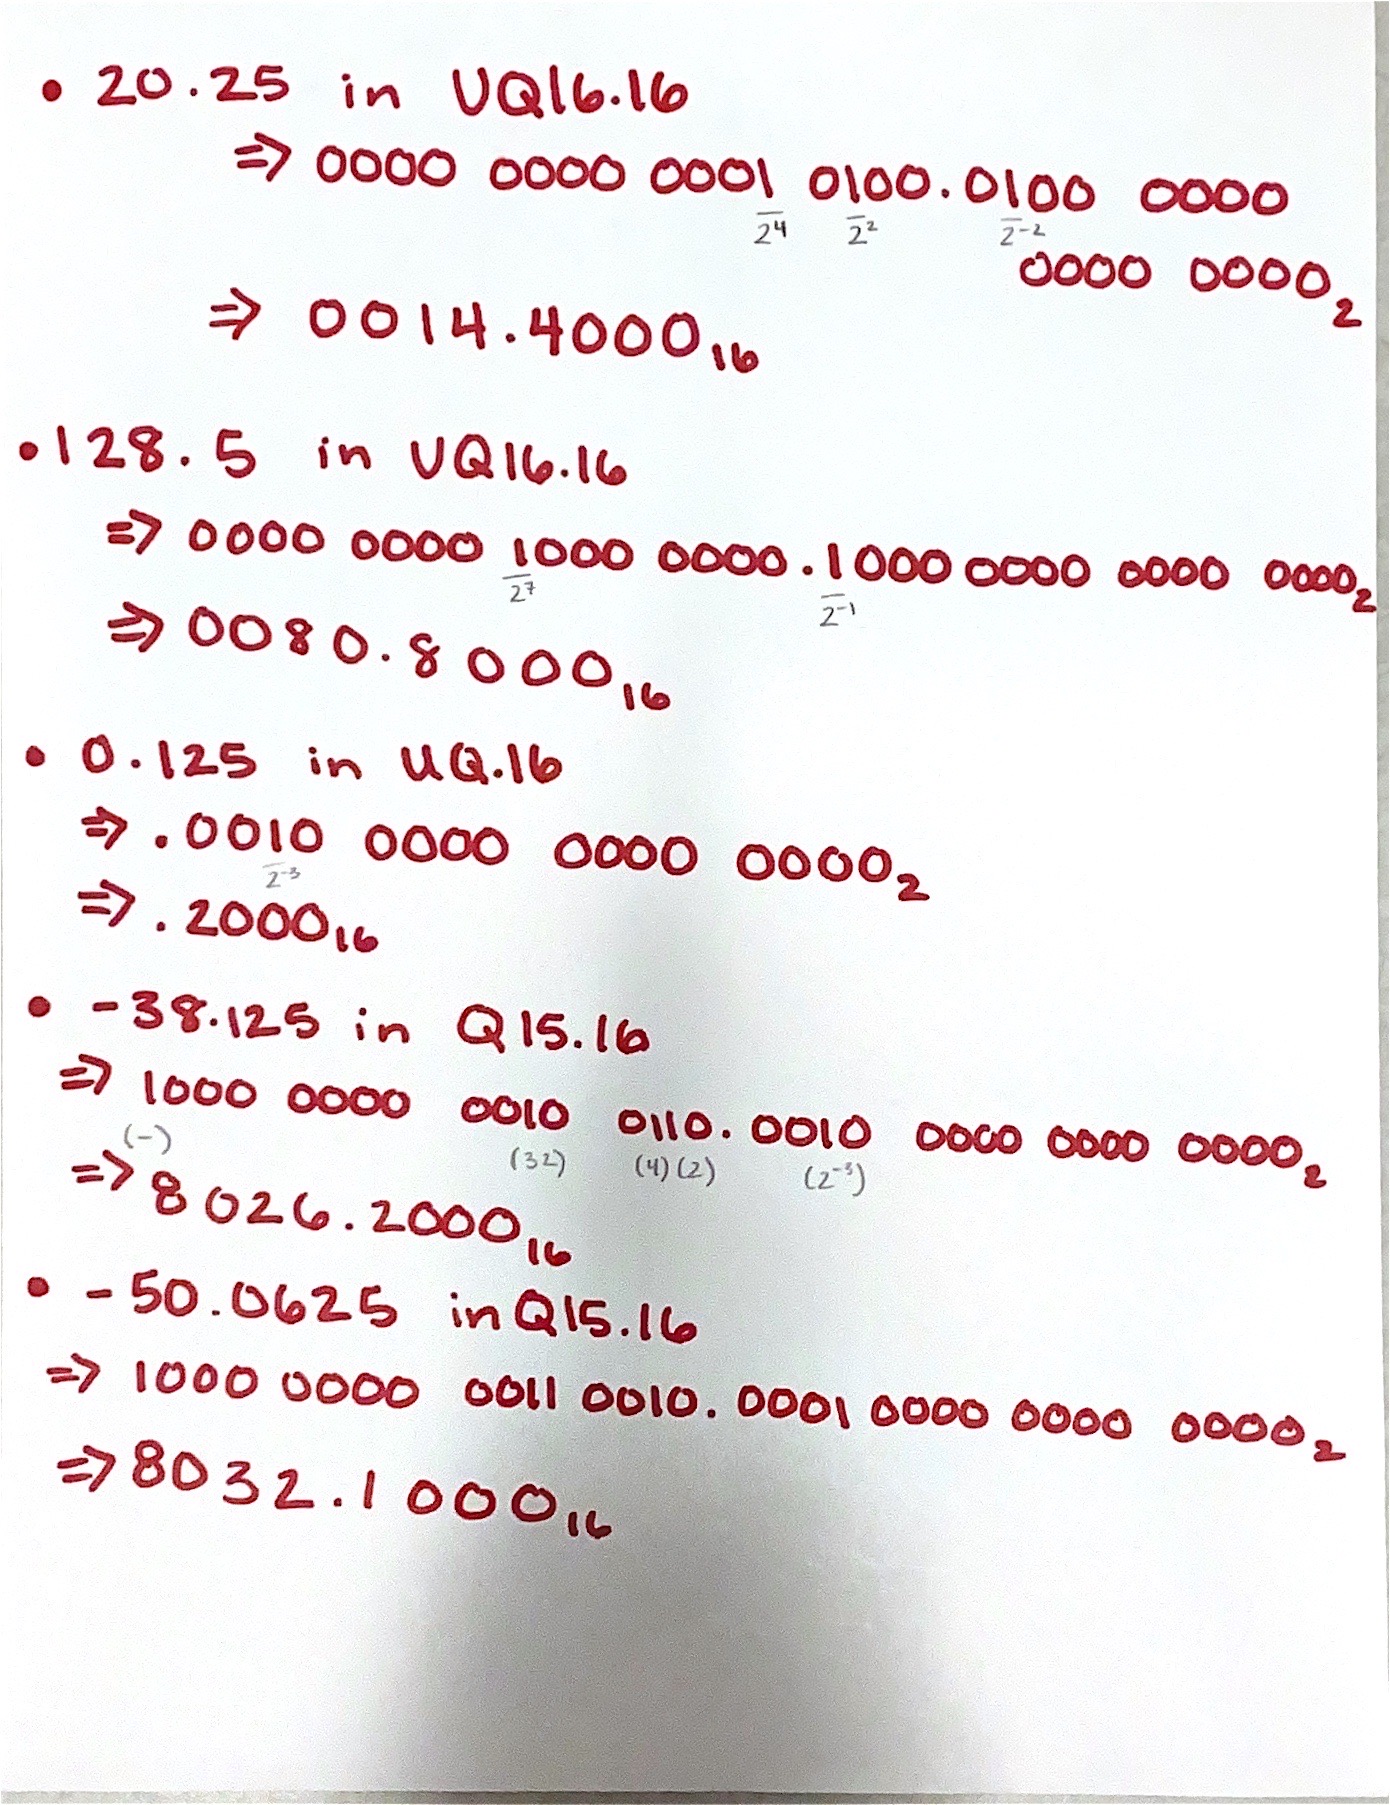 • 20.25 in UQ16.16
⇒ 0000 0000 0001 0100.0100 0000
2⁴ 2² 2⁻²
0000 0000₂
⇒ 0014.4000₁₆
• 128.5 in UQ16.16
⇒ 0000 0000 1000 0000.1000 0000 0000 0000₂
2⁷ 2⁻¹
⇒ 0080.8000₁₆
• 0.125 in UQ.16
⇒ .0010 0000 0000 0000₂
2⁻³
⇒ .2000₁₆
• -38.125 in Q15.16
⇒ 1000 0000 0010 0110.0010 0000 0000 0000₂
(-) (32) (4)(2) (2⁻³)
⇒ 8026.2000₁₆
• -50.0625 in Q15.16
⇒ 1000 0000 0011 0010.0001 0000 0000 0000₂
⇒ 8032.1000₁₆